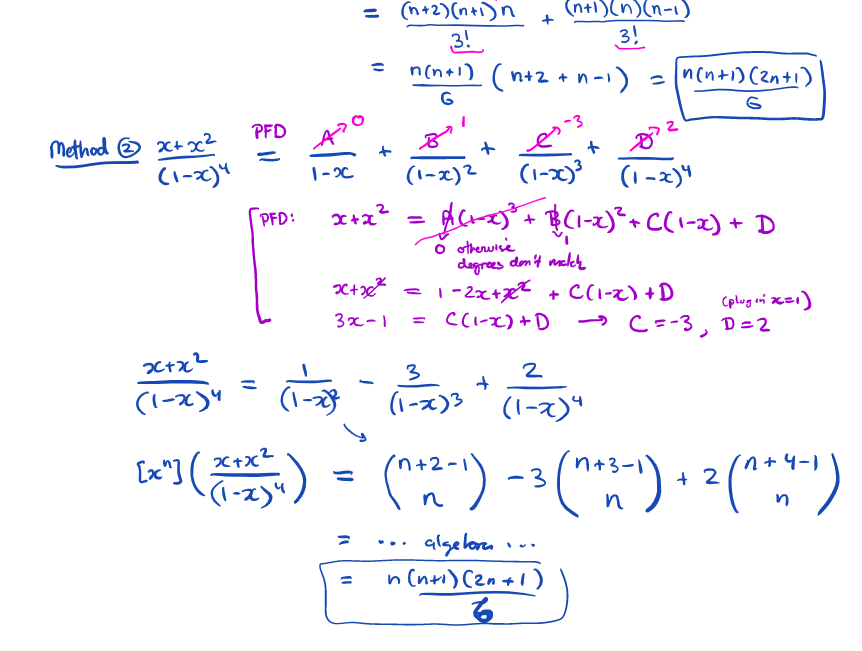 = (n+2)(n+1)n/3! + (n+1)(n)(n-1)/3!
= n(n+1)/6 (n+2 + n-1) = n(n+1)(2n+1)/6
Method ② x+x²/(1-x)⁴ PFD = A→0/1-x + B→1/(1-x)² + C→-3/(1-x)³ + D→2/(1-x)⁴
PFD: x+x² = A(1-x)³ + B(1-x)² + C(1-x) + D
0 otherwise degrees don't match 1
x+x² = 1-2x+x² + C(1-x)+D
3x-1 = C(1-x)+D → C=-3, D=2 (plug in x=1)
x+x²/(1-x)⁴ = 1/(1-x)² - 3/(1-x)³ + 2/(1-x)⁴
[xⁿ](x+x²/(1-x)⁴) = (n+2-1 n) - 3(n+3-1 n) + 2(n+4-1 n)
= ... algebra ...
= n(n+1)(2n+1)/6